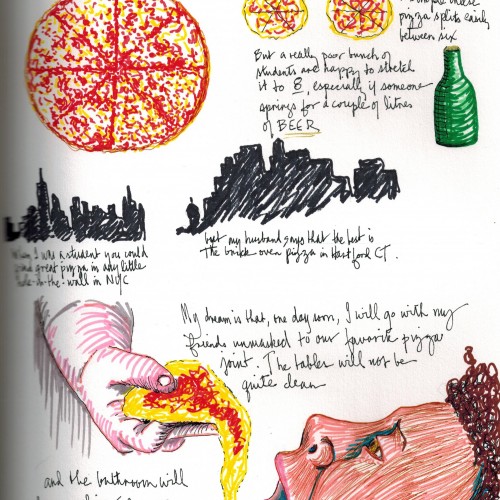 pizza splits easily
between six
But a really poor bunch of
students are happy to stretch
it to 8, especially if someone
springs for a couple of litres
of BEER
I was a student you could
great pizza in any little
in-the-wall in NYC
but my husband says that the best is
The brick-oven pizza in Hartford CT.
My dream is that, one day soon, I will go with my
friends unmasked to our favorite pizza
joint. The tables will not be
quite clean
and the bathroom will